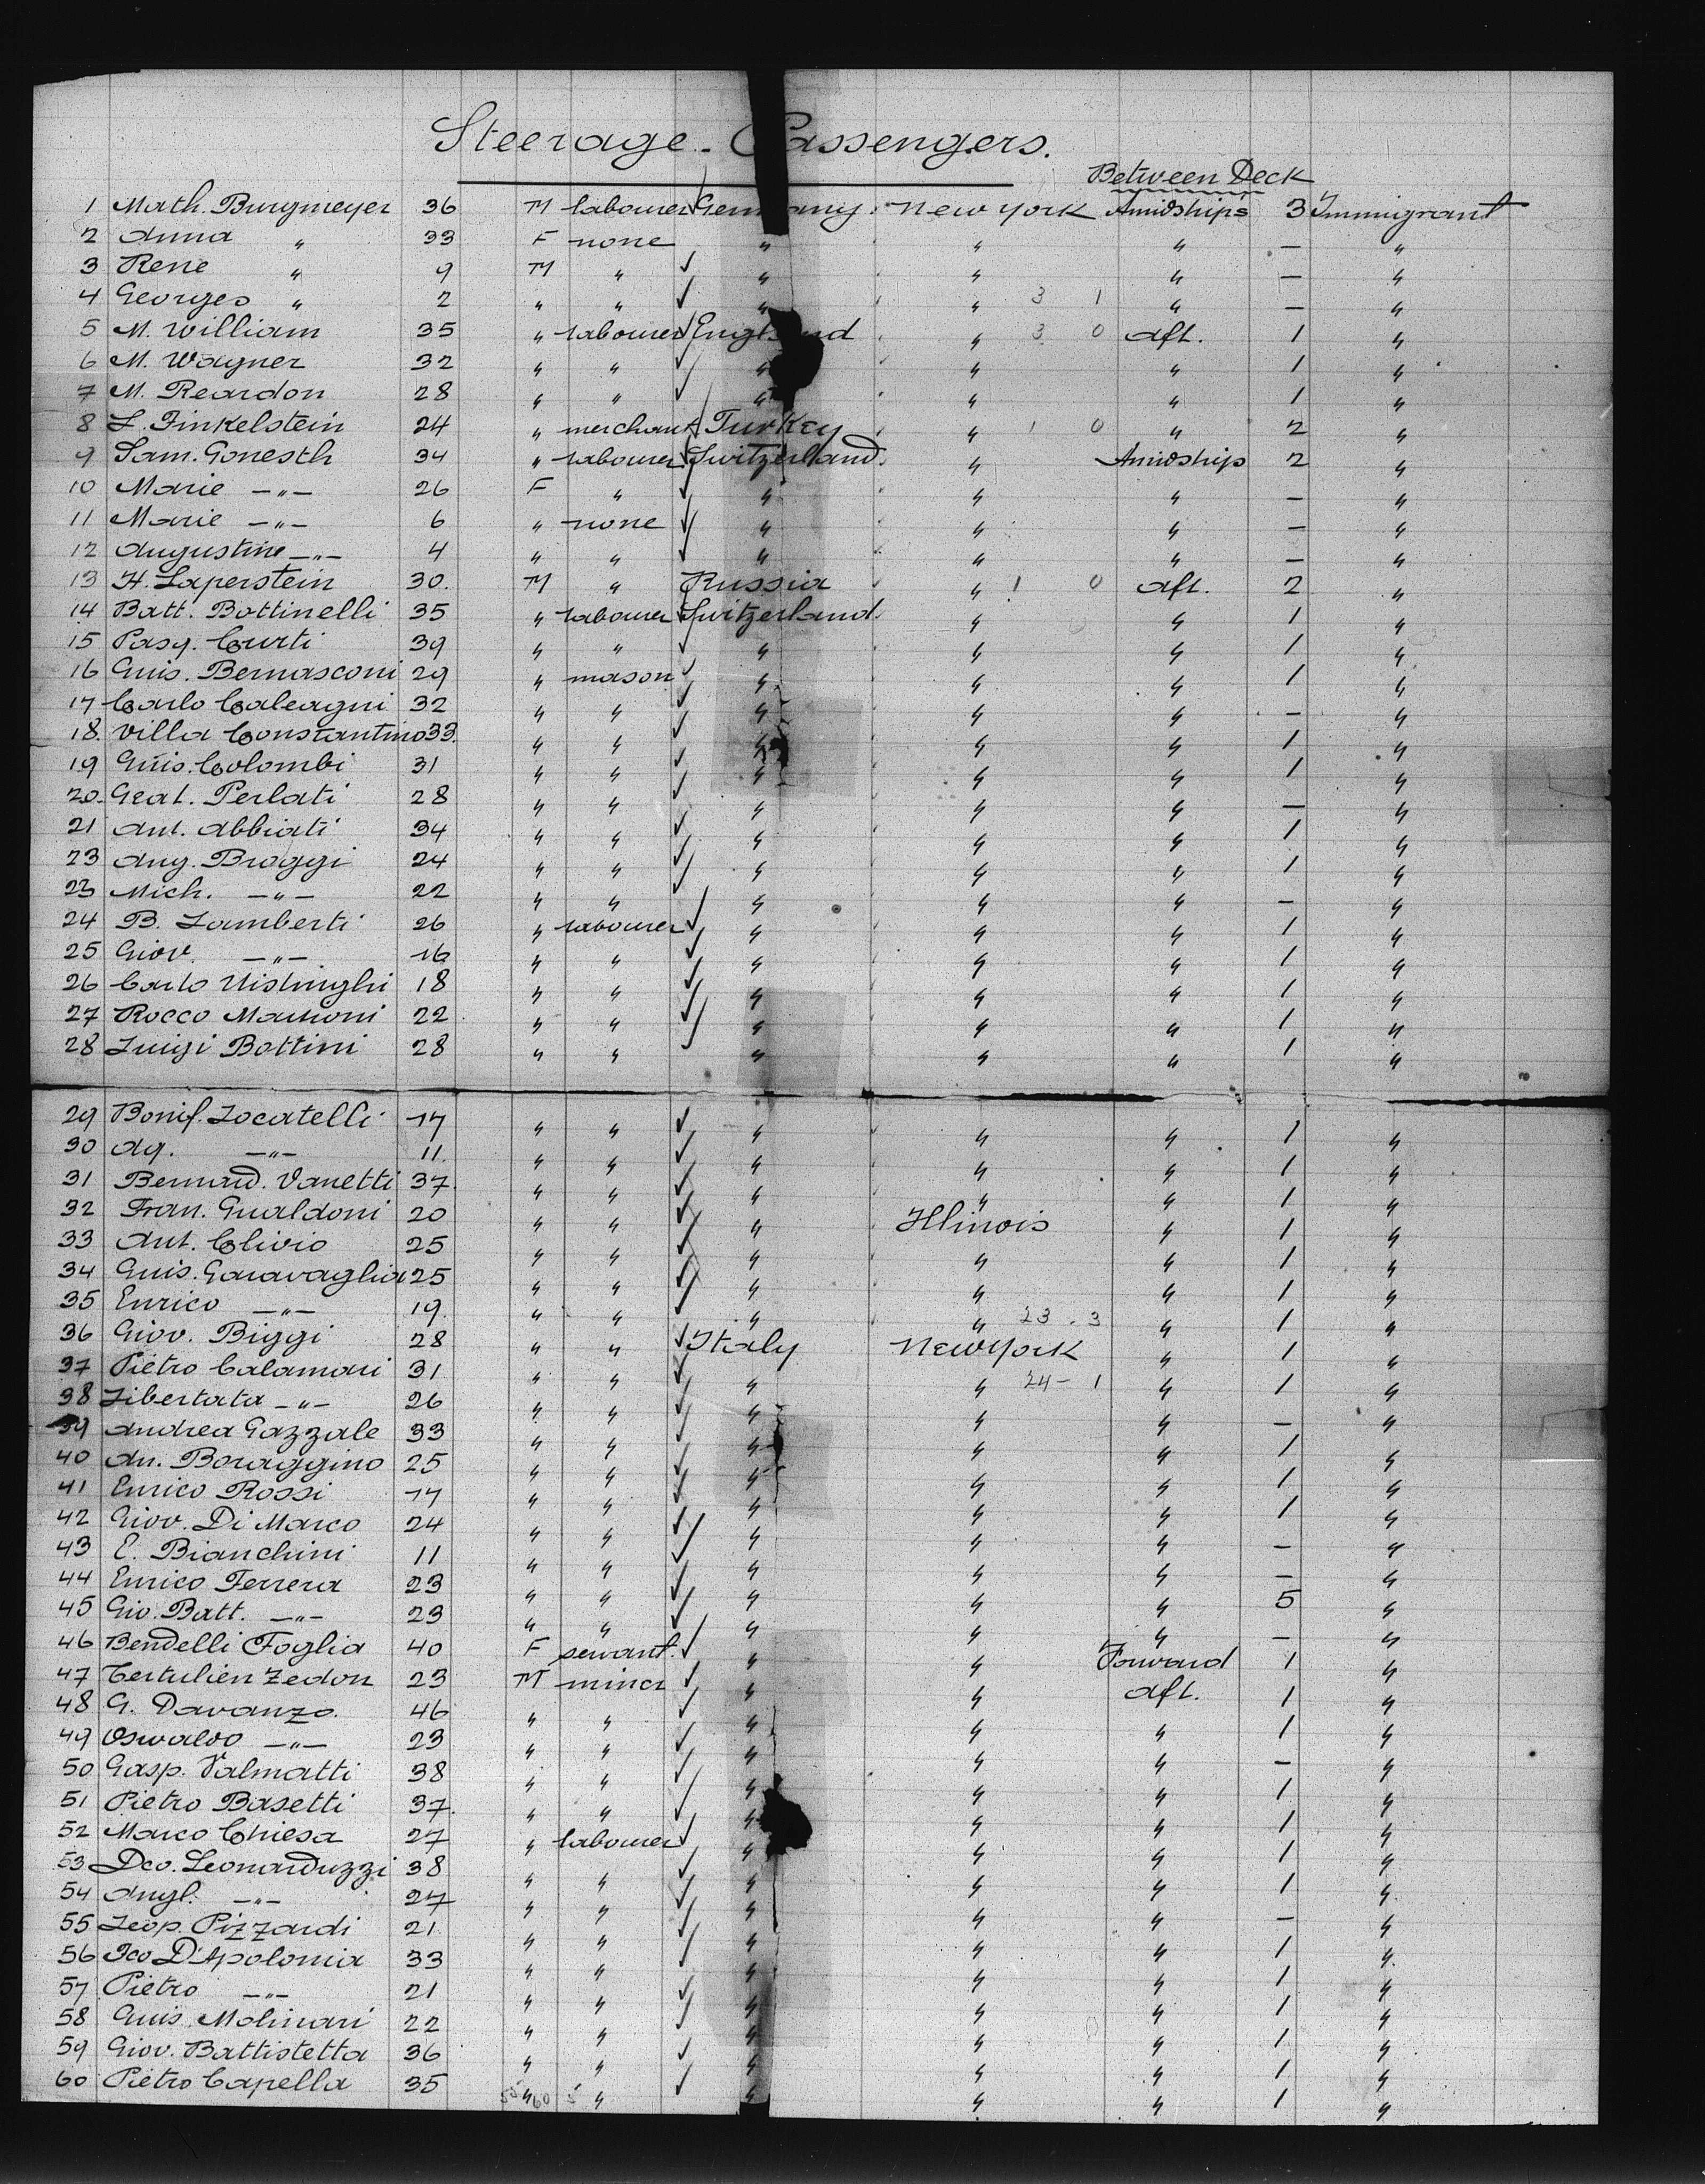 Steerage Passengers.
Between Deck
1 Math. Burgmeyer 36 M labourer Germany New York Amidships 3 Immigrant
2 Anna " 33 F none " " " — "
3 Rene " 9 M " " " " — "
4 Georges " 2 " " " " 3 1 " — "
5 M. William 35 " labourer England " 3 0 aft. 1 "
6 M. Wagner 32 " " " " " 1 "
7 M. Reardon 28 " " " " " 1 "
8 L. Finkelstein 24 " merchant Turkey " 1 0 " 2 "
9 Sam. Gonesth 34 " labourer Switzerland " Amidship 2 "
10 Marie —"— 26 F " " " " — "
11 Marie —"— 6 " none " " " — "
12 Augustine —"— 4 " " " " " — "
13 H. Laperstein 30. M " Russia " 1 0 aft. 2 "
14 Batt. Bottinelli 35 " labourer Switzerland " " 1 "
15 Pasq. Curti 39 " " " " " 1 "
16 Guis. Bernasconi 29 " mason " " " 1 "
17 Carlo Calcagni 32 " " " " " — "
18. Villa Constantino 33. " " " " " 1 "
19 Guis. Colombi 31 " " " " " 1 "
20. Geat. Perlati 28 " " " " " — "
21 Ant. Abbiati 34 " " " " " 1 "
23 Aug. Broggi 24 " " " " " 1 "
23 Mich. —"— 22 " " " " " — "
24 B. Lamberti 26 " labourer " " " 1 "
25 Giov. —"— 16 " " " " " 1 "
26 Carlo 18 " " " " " 1 "
27 Rocco 22 " " " " " 1 "
28 Luigi Bottini 28 " " " " " 1 "
29 Bonif. Locatelli 17 " " " " " 1 "
30 Ag. —"— 11. " " " " " 1 "
31 Bernard. Vanetti 37. " " " " " 1 "
32 Fran. Gualdoni 20 " " " Illinois " 1 "
33 Ant. Clivio 25 " " " " " 1 "
34 Guis. Garavaglia 25 " " " " " 1 "
35 Enrico —"— 19. " " " " 23 . 3 " 1 "
36 Giov. Biggi 28 " " Italy New York " 1 "
37 Pietro Calamari 31 " " " " 24 – 1 " 1 "
38 Libertata —"— 26 " " " " " — "
39 Andrea Gazzale 33 " " " " " 1 "
40 An. Boraggino 25 " " " " " 1 "
41 Enrico Rossi 17 " " " " " 1 "
42 Giov. Di Marco 24 " " " " " — "
43 E. Bianchini 11 " " " " " — "
44 Enrico Ferrera 23 " " " " " 5 "
45 Gio. Batt. —"— 23 " " " " " — "
46 Bendelli Foglia 40 F servant. " " Forward 1 "
47 Tertulien Zedon 23 M miner " " aft. 1 "
48 G. Davanzo. 46 " " " " " 1 "
49 Oswaldo —"— 23 " " " " " — "
50 Gasp. Valmatti 38 " " " " " 1 "
51 Pietro Basetti 37. " " " " " 1 "
52 Marco Chiesa 27 " labourer " " " 1 "
53 Dco. Leonarduzzi 38 " " " " " 1 "
54 Angl. —"— 27 " " " " " — "
55 Leop. Pizzardi 21. " " " " " 1 "
56 D'Apolonia 33 " " " " " 1 "
57 Pietro —"— 21 " " " " " 1 "
58 Guis. Molinari 22 " " " " " 1 "
59 Giov. Battistetta 36 " " " " " 1 "
60 Pietro Capella 35 " " " " " 1 "